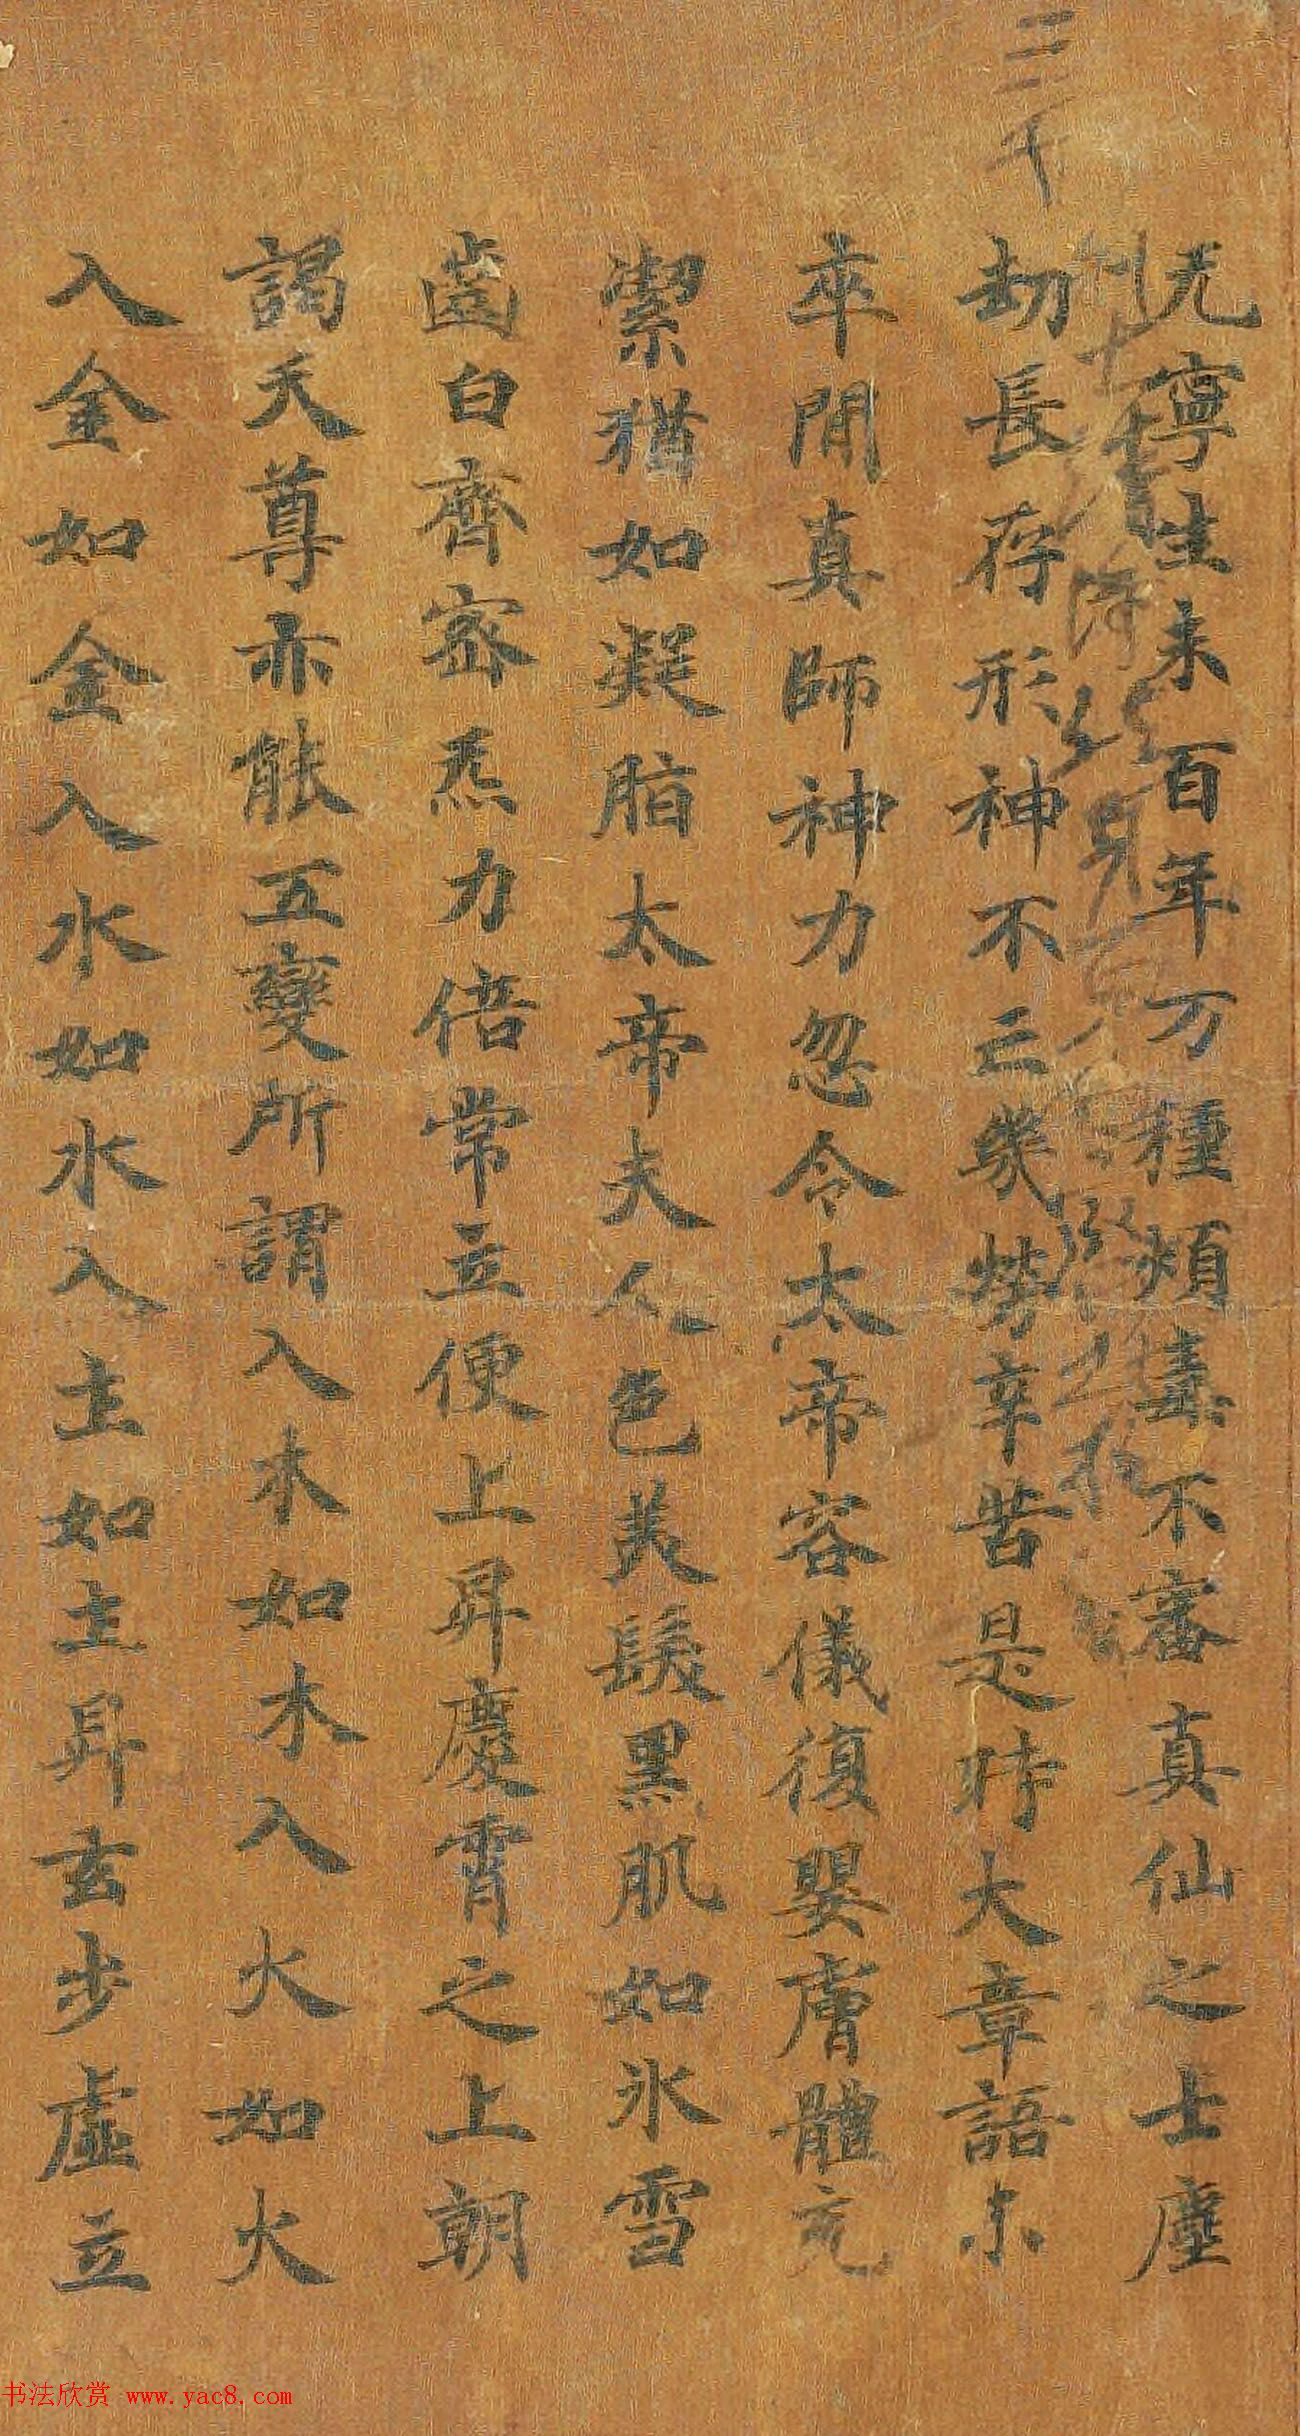 三千
无寧生来百年万種煩毒不審真仙之士塵
劫長存形神不亡幾勞辛苦是時大章語未
卒間真師神力忽令太帝容儀復嬰膚體充
潔猶如凝脂太帝夫人色美髮黑肌如氷雪
齒白齊密炁力倍常立便上昇慶霄之上朝
謁天尊亦能五變所謂入木如木入火如火
入金如金入水如水入土如土昇玄步虛立
书法欣赏 www.yac8.com